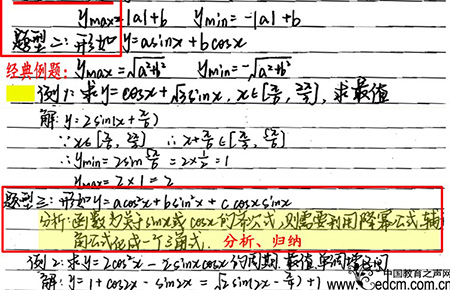 ymax=|a|+b ymin=-|a|+b
题型二:形如y=asinx+bcosx
经典例题: ymax=√a²+b² ymin=-√a²+b²
例1:求y=cosx+√3sinx, x∈[π/6, 2π/3], 求最值
解: y=2sin(x+π/6)
∵x∈[π/6, 2π/3] ∴x+π/6∈[π/3, 5π/6]
∴ymin=2sin5π/6=2×1/2=1
ymax=2×1=2
题型三:形如y=acos²x+bsin²x+c cosxsinx
分析:函数为关于sinx或cosx的齐次式,则需要利用降幂公式,辅
助角公式化成一个三角式. 分析、归纳
例2:求y=2cos²x-2sinxcosx的周期.最值.单调增区间
解: y=1+cos2x-sin2x=√2sin(2x-π/4)+1
中国教育之声网
edcm.com.cn